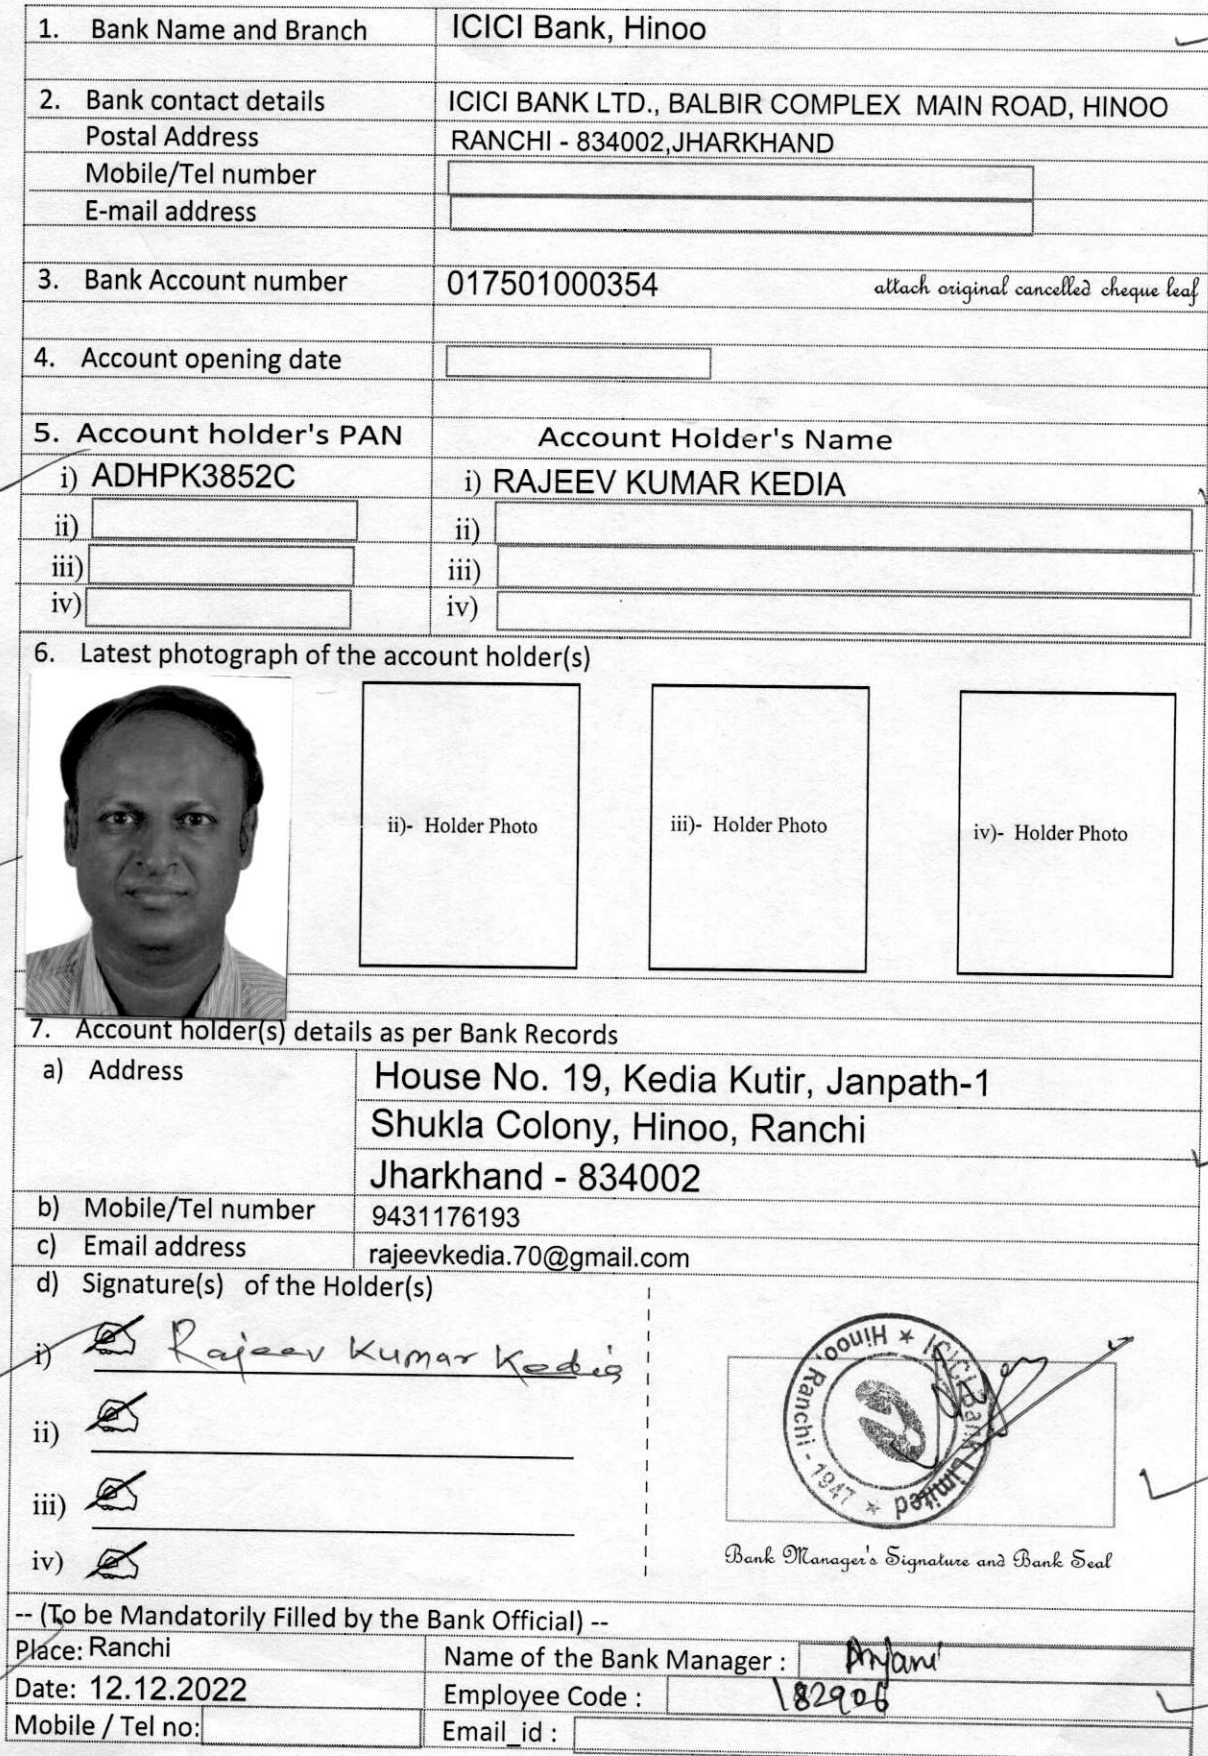 1. Bank Name and Branch ICICI Bank, Hinoo
2. Bank contact details ICICI BANK LTD., BALBIR COMPLEX MAIN ROAD, HINOO
Postal Address RANCHI - 834002,JHARKHAND
Mobile/Tel number
E-mail address
3. Bank Account number 017501000354 attach original cancelled cheque leaf
4. Account opening date
5. Account holder's PAN Account Holder's Name
i) ADHPK3852C i) RAJEEV KUMAR KEDIA
ii) ii)
iii) iii)
iv) iv)
6. Latest photograph of the account holder(s)
ii)- Holder Photo iii)- Holder Photo iv)- Holder Photo
7. Account holder(s) details as per Bank Records
a) Address House No. 19, Kedia Kutir, Janpath-1
Shukla Colony, Hinoo, Ranchi
Jharkhand - 834002
b) Mobile/Tel number 9431176193
c) Email address rajeevkedia.70@gmail.com
d) Signature(s) of the Holder(s)
i) Rajeev Kumar Kedia
ii)
iii)
iv)
ICICI Bank Limited * Hinoo, Ranchi - 1947 *
Bank Manager's Signature and Bank Seal
-- (To be Mandatorily Filled by the Bank Official) --
Place: Ranchi Name of the Bank Manager : Anjani
Date: 12.12.2022 Employee Code : 182906
Mobile / Tel no: Email_id :